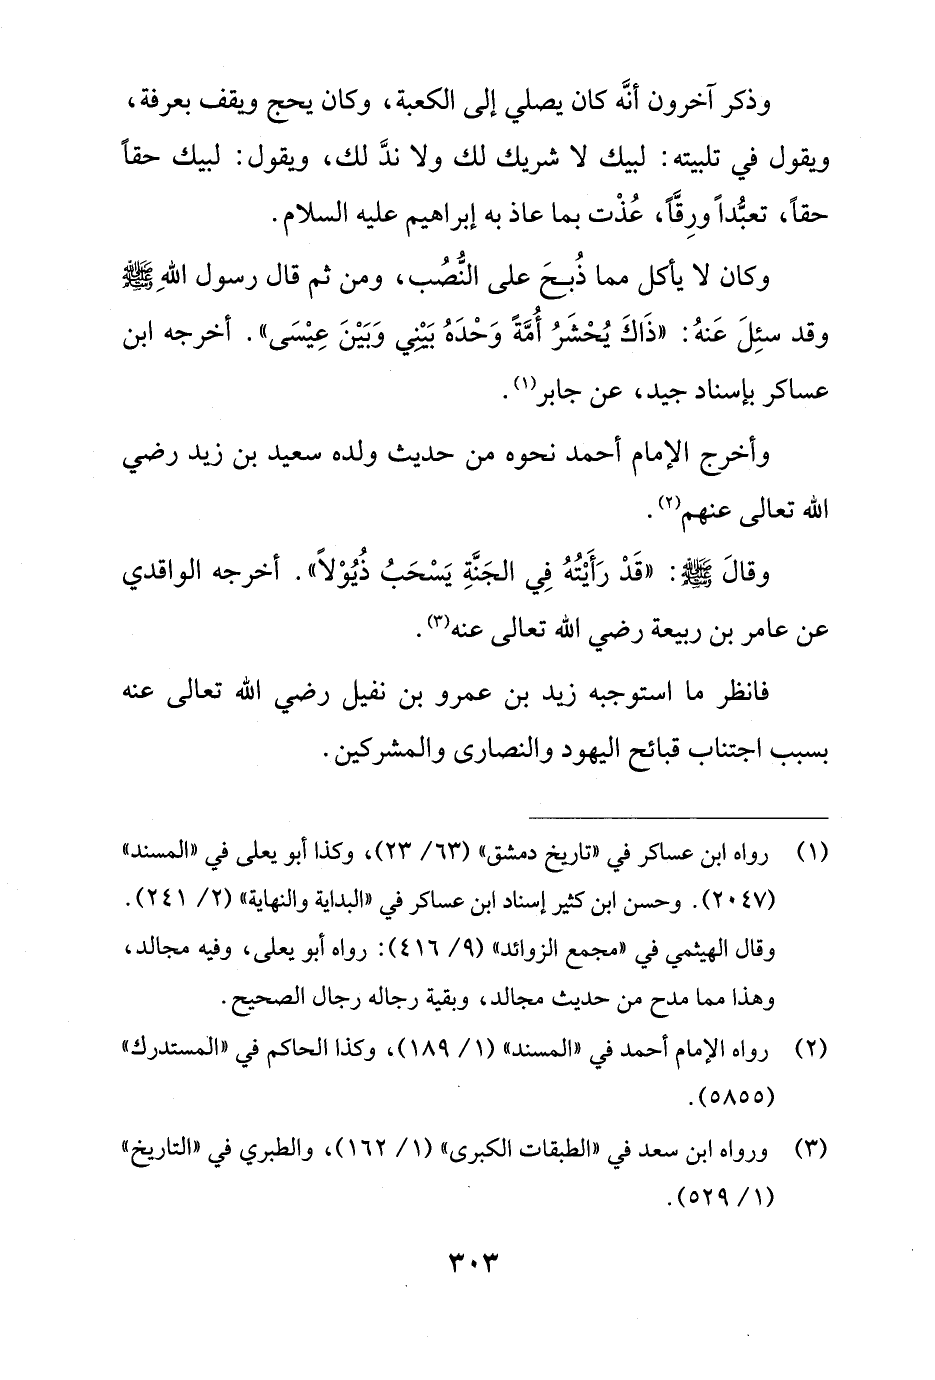 وذكر آخرون أنَّه كان يصلي إلى الكعبة، وكان يحج ويقف بعرفة،
ويقول في تلبيته: لبيك لا شريك لك ولا ندَّ لك، ويقول: لبيك حقاً
حقاً، تعبُّداً ورِقَّاً، عُذْت بما عاذ به إبراهيم عليه السلام.
وكان لا يأكل مما ذُبحَ على النُّصُب، ومن ثم قال رسول اللهِ ﷺ
وقد سئِلَ عَنهُ: «ذَاكَ يُحْشَرُ أُمَّةً وَحْدَهُ بَيْنِي وَبَيْنَ عِيْسَى». أخرجه ابن
عساكر بإسناد جيد، عن جابر(١).
وأخرج الإمام أحمد نحوه من حديث ولده سعيد بن زيد رضي
الله تعالى عنهم(٢).
وقالَ ﷺ: «قَدْ رَأَيْتُهُ فِي الجَنَّةِ يَسْحَبُ ذُيُوْلاً». أخرجه الواقدي
عن عامر بن ربيعة رضي الله تعالى عنه(٣).
فانظر ما استوجبه زيد بن عمرو بن نفيل رضي الله تعالى عنه
بسبب اجتناب قبائح اليهود والنصارى والمشركين.
(١) رواه ابن عساكر في «تاريخ دمشق» (٦٣/ ٢٣)، وكذا أبو يعلى في «المسند»
(٢٠٤٧). وحسن ابن كثير إسناد ابن عساكر في «البداية والنهاية» (٢/ ٢٤١).
وقال الهيثمي في «مجمع الزوائد» (٩/ ٤١٦): رواه أبو يعلى، وفيه مجالد،
وهذا مما مدح من حديث مجالد، وبقية رجاله رجال الصحيح.
(٢) رواه الإمام أحمد في «المسند» (١/ ١٨٩)، وكذا الحاكم في «المستدرك»
(٥٨٥٥).
(٣) ورواه ابن سعد في «الطبقات الكبرى» (١/ ١٦٢)، والطبري في «التاريخ»
(١/ ٥٢٩).
٣٠٣